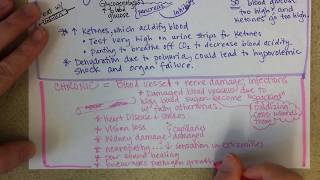 Glycogenolysis
↑ blood
glucose
so blood
too high and
ketones go too high.
* ↑ Ketones, which acidify blood
• Test very high on urine strips for ketones
• Panting to breathe off CO₂ to decrease blood acidity.
* Dehydration due to polyuria, could lead to hypovolemic
shock and organ failure.
CHRONIC = Blood vessel + nerve damage, infections
* Damaged blood vessels due to
high blood sugar become "spackled"
w/ fatty atheromas.
* Heart Disease & strokes
* Vision loss
* Kidney damage
capillaries
damaged
* Neuropathy ... ↓ sensation in extremities
* poor wound healing
* encourages pathogen growth